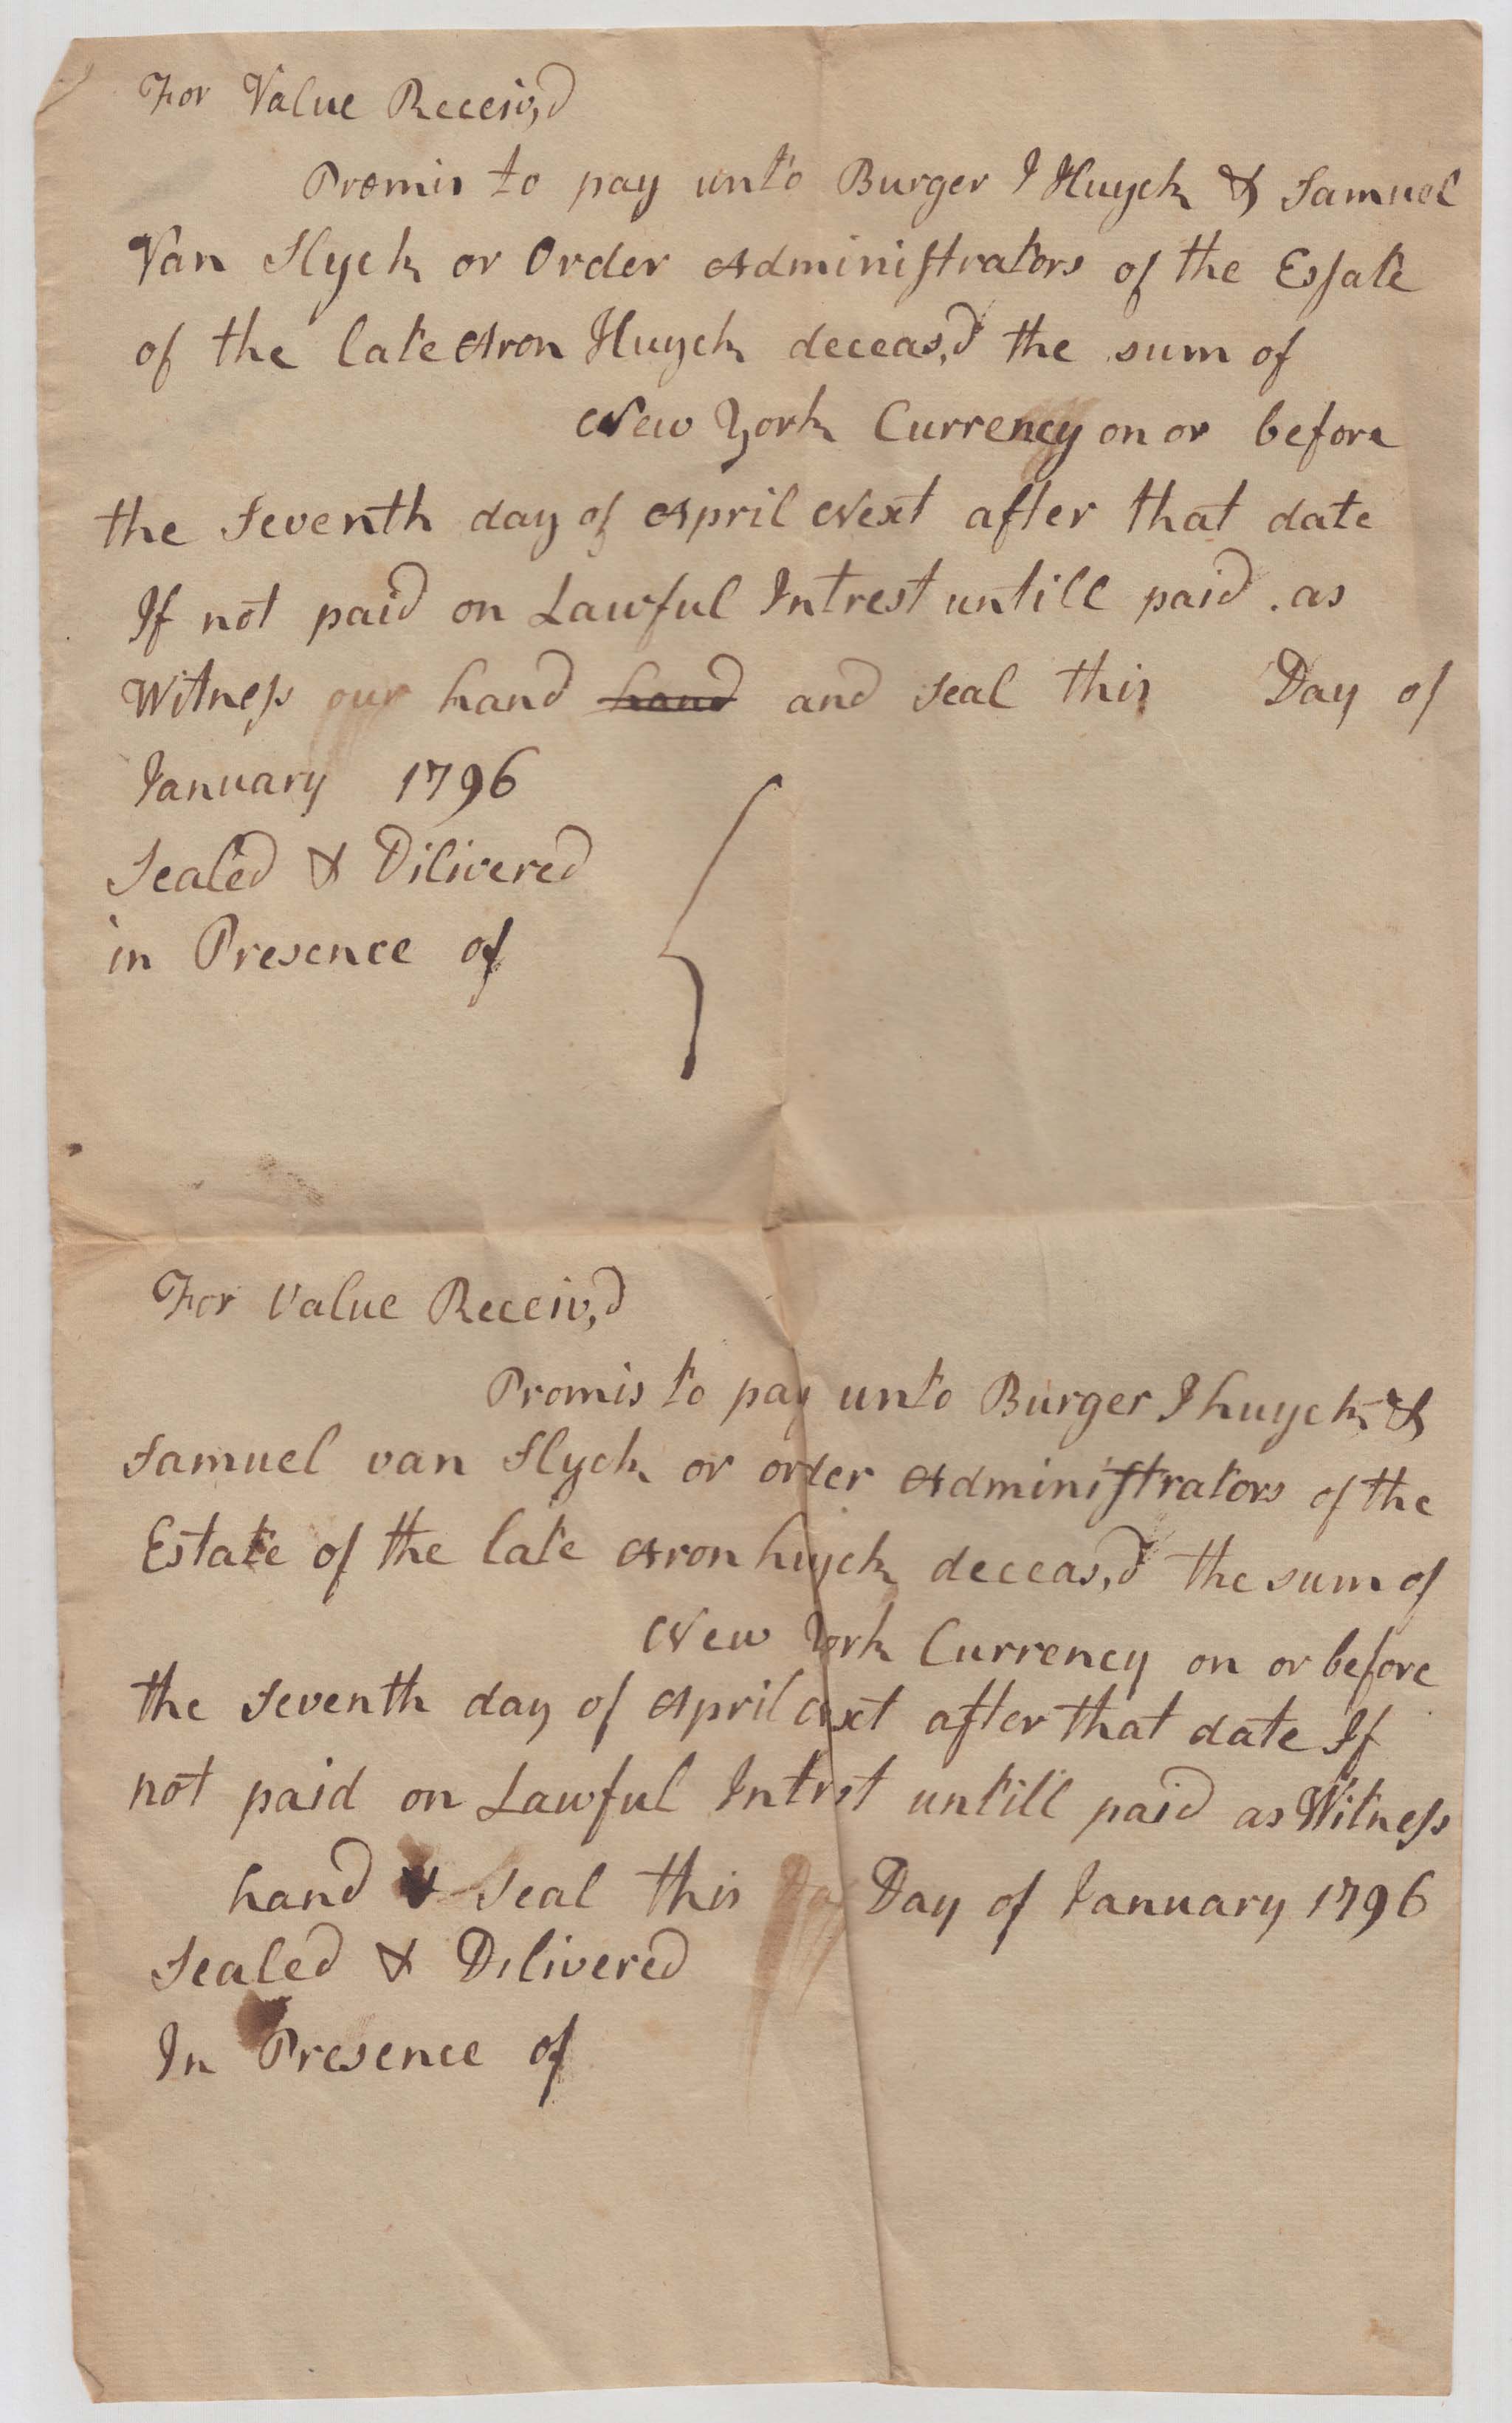 For Value Receiv,d
Promis to pay unto Burger I Huyck & Samuel
Van Slyck or Order Administrators of the Essate
of the late Aron Huyck deceas,d the sum of
New York Currency on or before
the Seventh day of April Next after that date
If not paid on Lawful Intrest untill paid . as
Witness our hand hand and seal this Day of
January 1796
Sealed & Dilivered
in Presence of
For Value Receiv,d
Promis to pay unto Burger I huyck &
Samuel van Slyck or order Administrators of the
Estate of the late Aron huyck deceas,d the sum of
New York Currency on or before
the Seventh day of April Next after that date If
not paid on Lawful Intrst untill paid as Witness
hand & Seal this Day Day of January 1796
Sealed & Dilivered
In Presence of